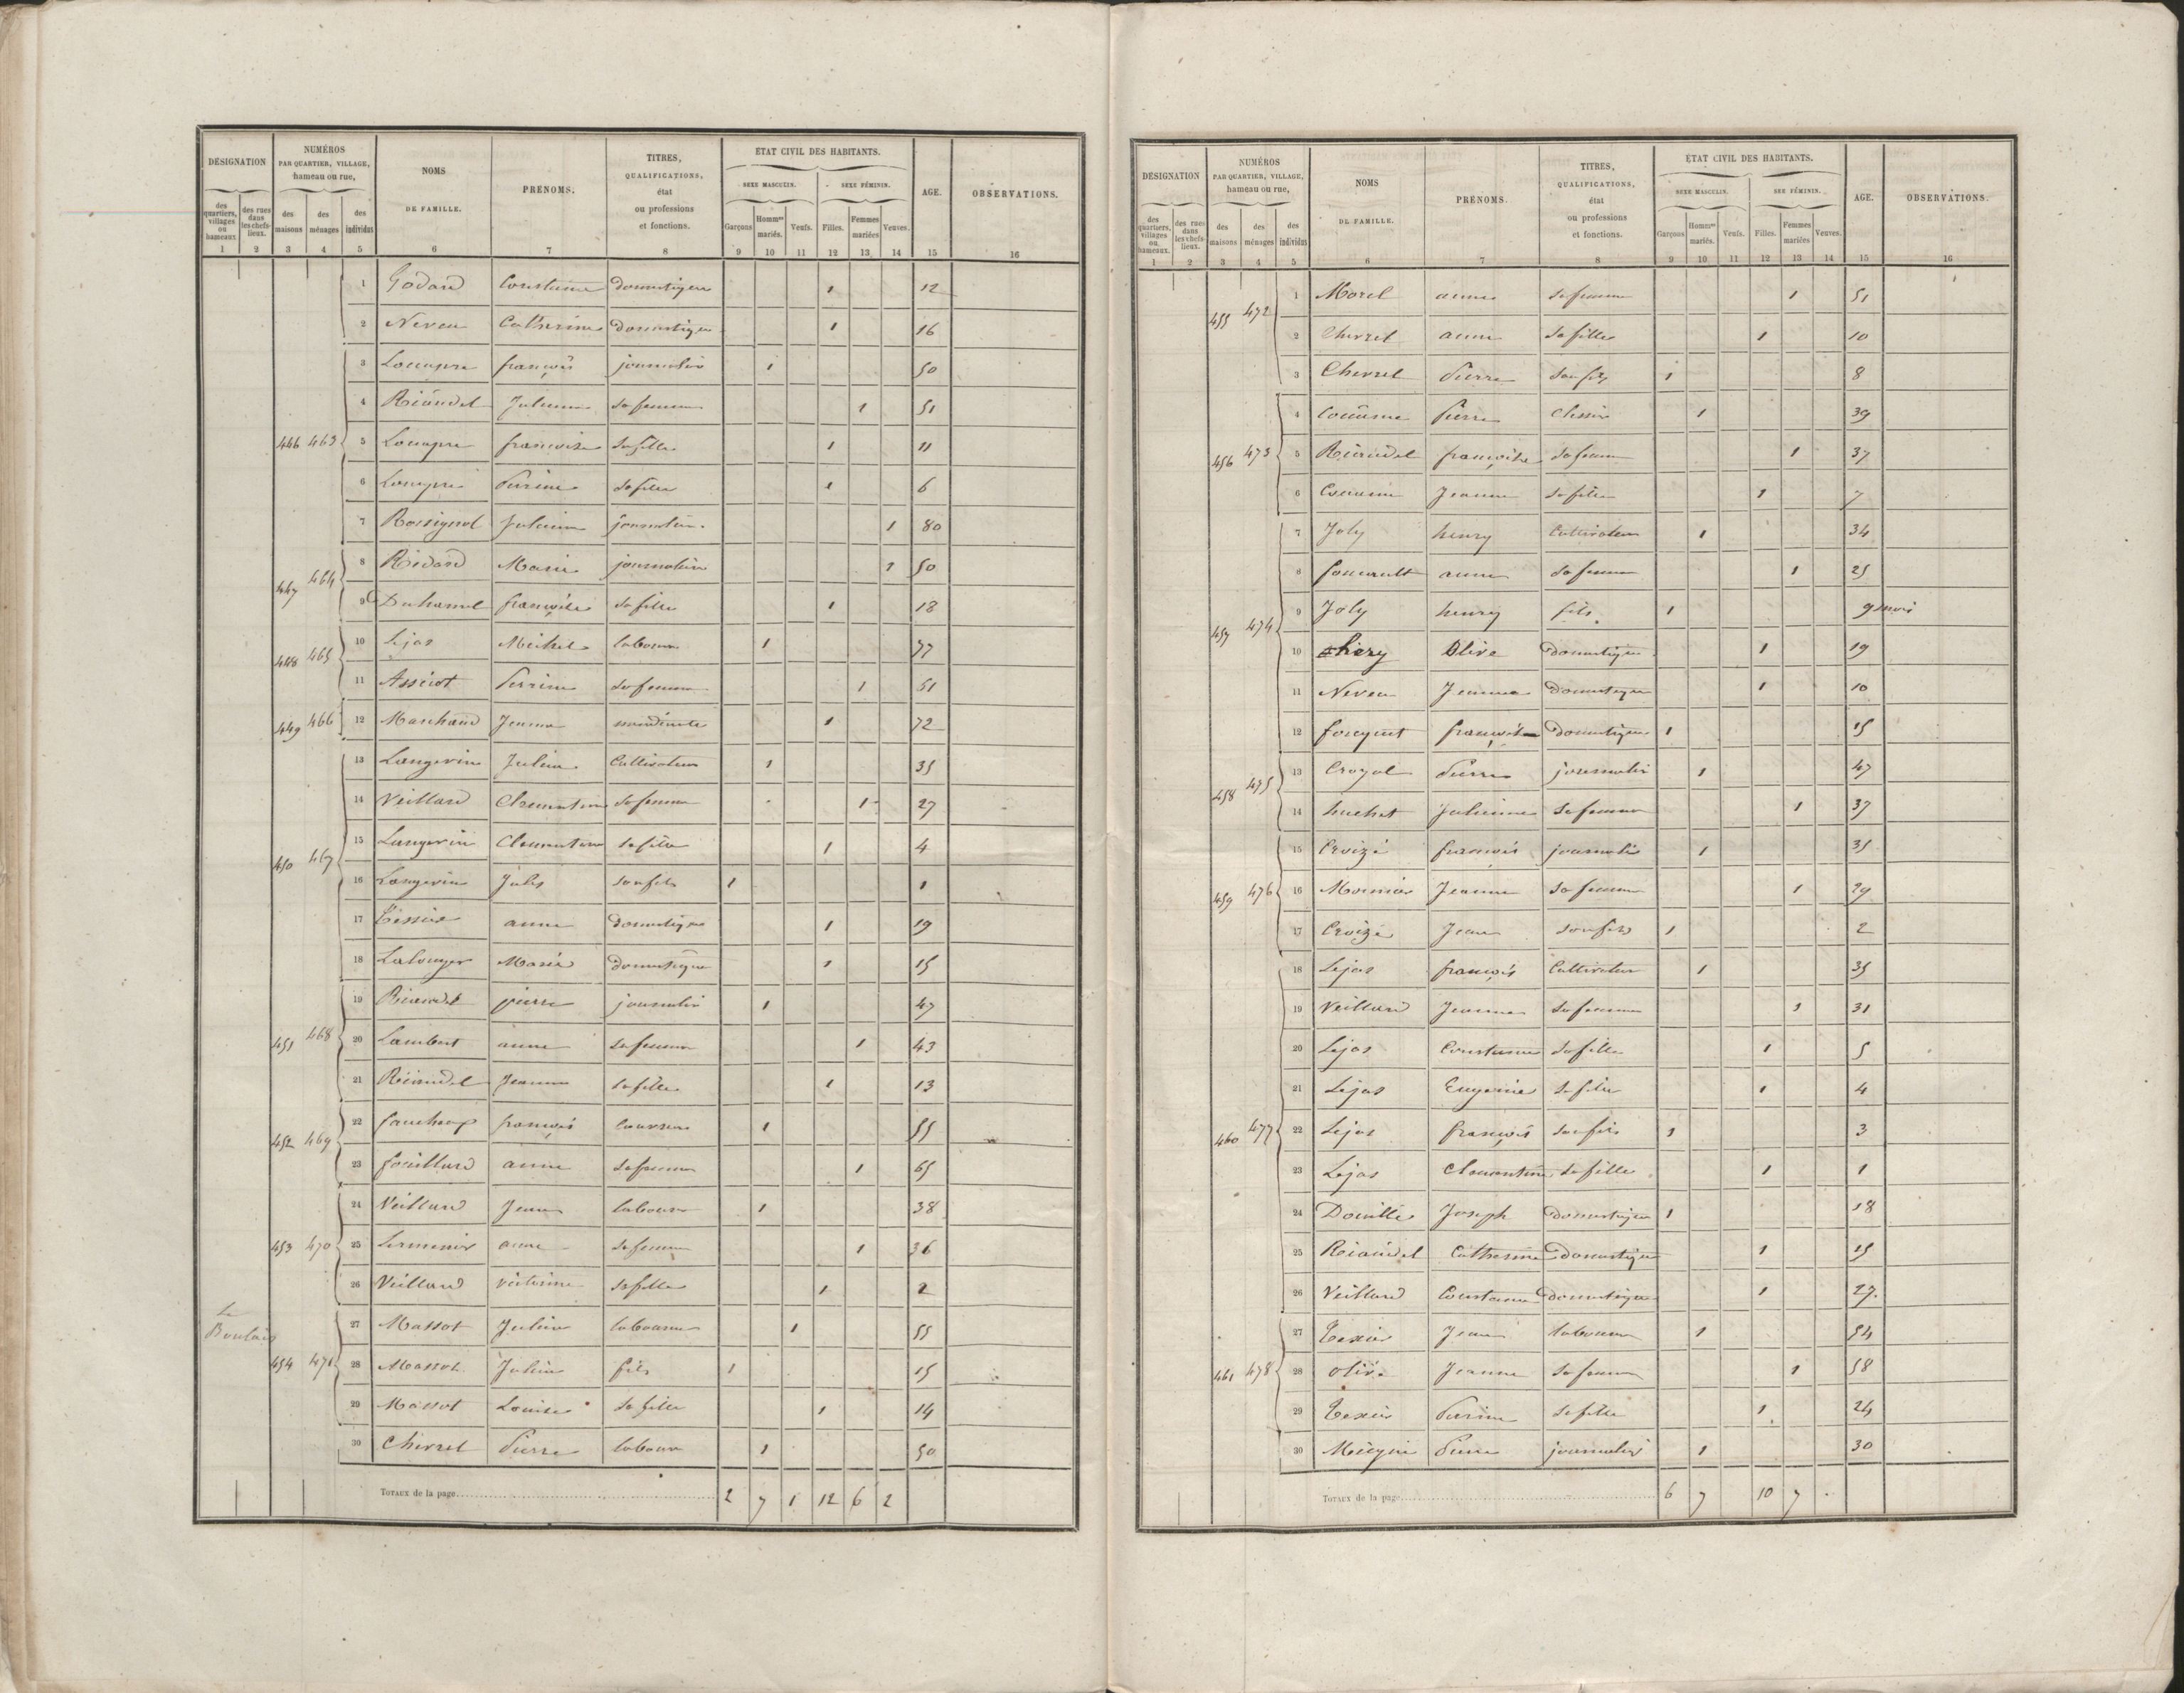 DÉSIGNATION NUMÉROS PAR QUARTIER, VILLAGE, hameau ou rue, NOMS DE FAMILLE. PRÉNOMS. TITRES, QUALIFICATIONS, état ou professions et fonctions. ÉTAT CIVIL DES HABITANTS. AGE. OBSERVATIONS.
SEXE MASCULIN. SEXE FÉMININ.
des quartiers, villages ou hameaux des rues dans les chefs-lieux. des maisons des ménages des individus Garçons Hommes mariés. Veufs. Filles. Femmes mariées Veuves.
1 2 3 4 5 6 7 8 9 10 11 12 13 14 15 16
1 Godard Constance domestique 1 12
2 Neveu Catherine domestique 1 16
3 Louapre françois journalier 1 50
4 Riaudel Julienne sa femme 1 51
446 463 5 Louapre françoise sa fille 1 11
6 Louapre Perrine sa fille 1 6
7 Rossignol Julienne journalière 1 80
447 464 8 Ridard Marie journalière 1 50
9 Duhamel françoise sa fille 1 18
448 465 10 Lejas Michel laboureur 1 77
11 Assriot Perrine sa femme 1 61
449 466 12 Marchand Jeanne mendiante 1 72
13 Langevin Julien Cultivateur 1 35
14 Veillard Clementine sa femme 1 27
15 Langevin Clementine sa fille 1 4
450 467 16 Langevin Jules son fils 1 1
17 Tessier anne domestique 1 19
18 Lalouyer Marie domestique 1 15
19 Riaudel pierre journalier 1 47
451 468 20 Lambert anne sa femme 1 43
21 Riaudel Jeanne sa fille 1 13
452 469 22 fauchoux françois couvreur 1 55
23 fouillard anne sa femme 1 65
24 Veillard Jean laboureur 1 38
453 470 25 Lermenier anne sa femme 1 36
26 Veillard victorine sa fille 1 2
Le Boulais
27 Massot Julien laboureur 1 55
454 471 28 Massot Julien fils 1 15
29 Massot Louise sa fille 1 14
30 Chevrel Pierre laboureur 1 50
TOTAUX de la page 2 7 1 12 6 2
DÉSIGNATION NUMÉROS PAR QUARTIER, VILLAGE, hameau ou rue, NOMS DE FAMILLE. PRÉNOMS. TITRES, QUALIFICATIONS, état ou professions et fonctions. ÉTAT CIVIL DES HABITANTS. AGE. OBSERVATIONS.
SEXE MASCULIN. SEXE FÉMININ.
des quartiers, villages ou hameaux. des rues dans les chefs-lieux. des maisons des ménages des individus Garçons Hommes mariés. Veufs. Filles. Femmes mariées Veuves.
1 2 3 4 5 6 7 8 9 10 11 12 13 14 15 16
455 472 1 Morel anne sa femme 1 51
2 Chevrel anne sa fille 1 10
3 Chevrel Pierre son fils 1 8
4 Pierre 1 39
456 473 5 Riaudel françoise sa femme 1 37
6 Jeanne sa fille 1 7
7 Joly henry Cultivateur 1 34
8 foucault anne sa femme 1 25
457 474 9 Joly henry fils 1 9 mois
10 Olive domestique 1 19
11 Neveu Jeanne domestique 1 10
12 fouquet domestique 1 15
458 475 13 Croyal Pierre journalier 1 47
14 huchet Julienne sa femme 1 37
15 Croizé françois journalier 1 35
459 476 16 Jeanne sa femme 1 29
17 Croizé Jean son fils 1 2
18 Lejas françois Cultivateur 1 35
19 Veillard Jeanne sa femme 1 31
20 Lejas Constance sa fille 1 5
21 Lejas Eugenie sa fille 1 4
460 477 22 Lejas françois son fils 1 3
23 Lejas Clementine sa fille 1 1
24 Douillé Joseph domestique 1 18
25 Riaudel Catherine domestique 1 15
26 Veillard Constance domestique 1 27
27 Texier Jean laboureur 1 54
461 478 28 olive Jeanne sa femme 1 58
29 Texier Perrine sa fille 1 24
30 Pierre journalier 1 30
TOTAUX de la page 6 7 10 7